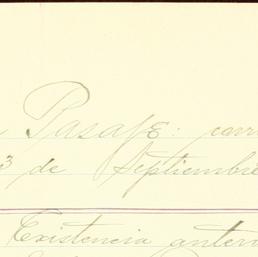 Pasaje: corr
3 de Septiembre
Existencia anteri